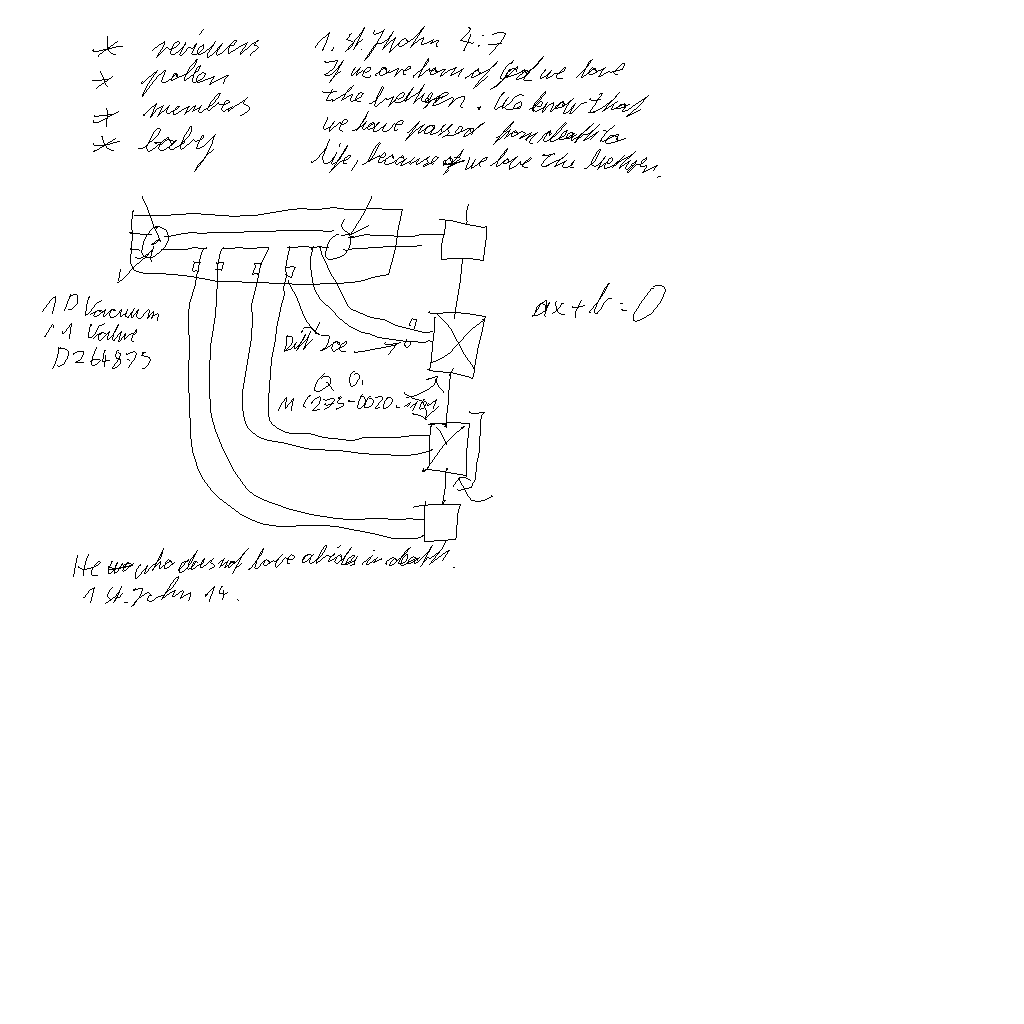 * reviewers
* pollen
* members
* baby
1. St. Jhohn 4:7
If we are born of God we love
the brethern. We know that
we have passed from death to
life, because we love the brethern.
1 D Vacuum
1 1 Valve
D264875
ax+b=0
Q O.
M C275-0020-1101
He who does not love abides in death.
1 St. John 14.